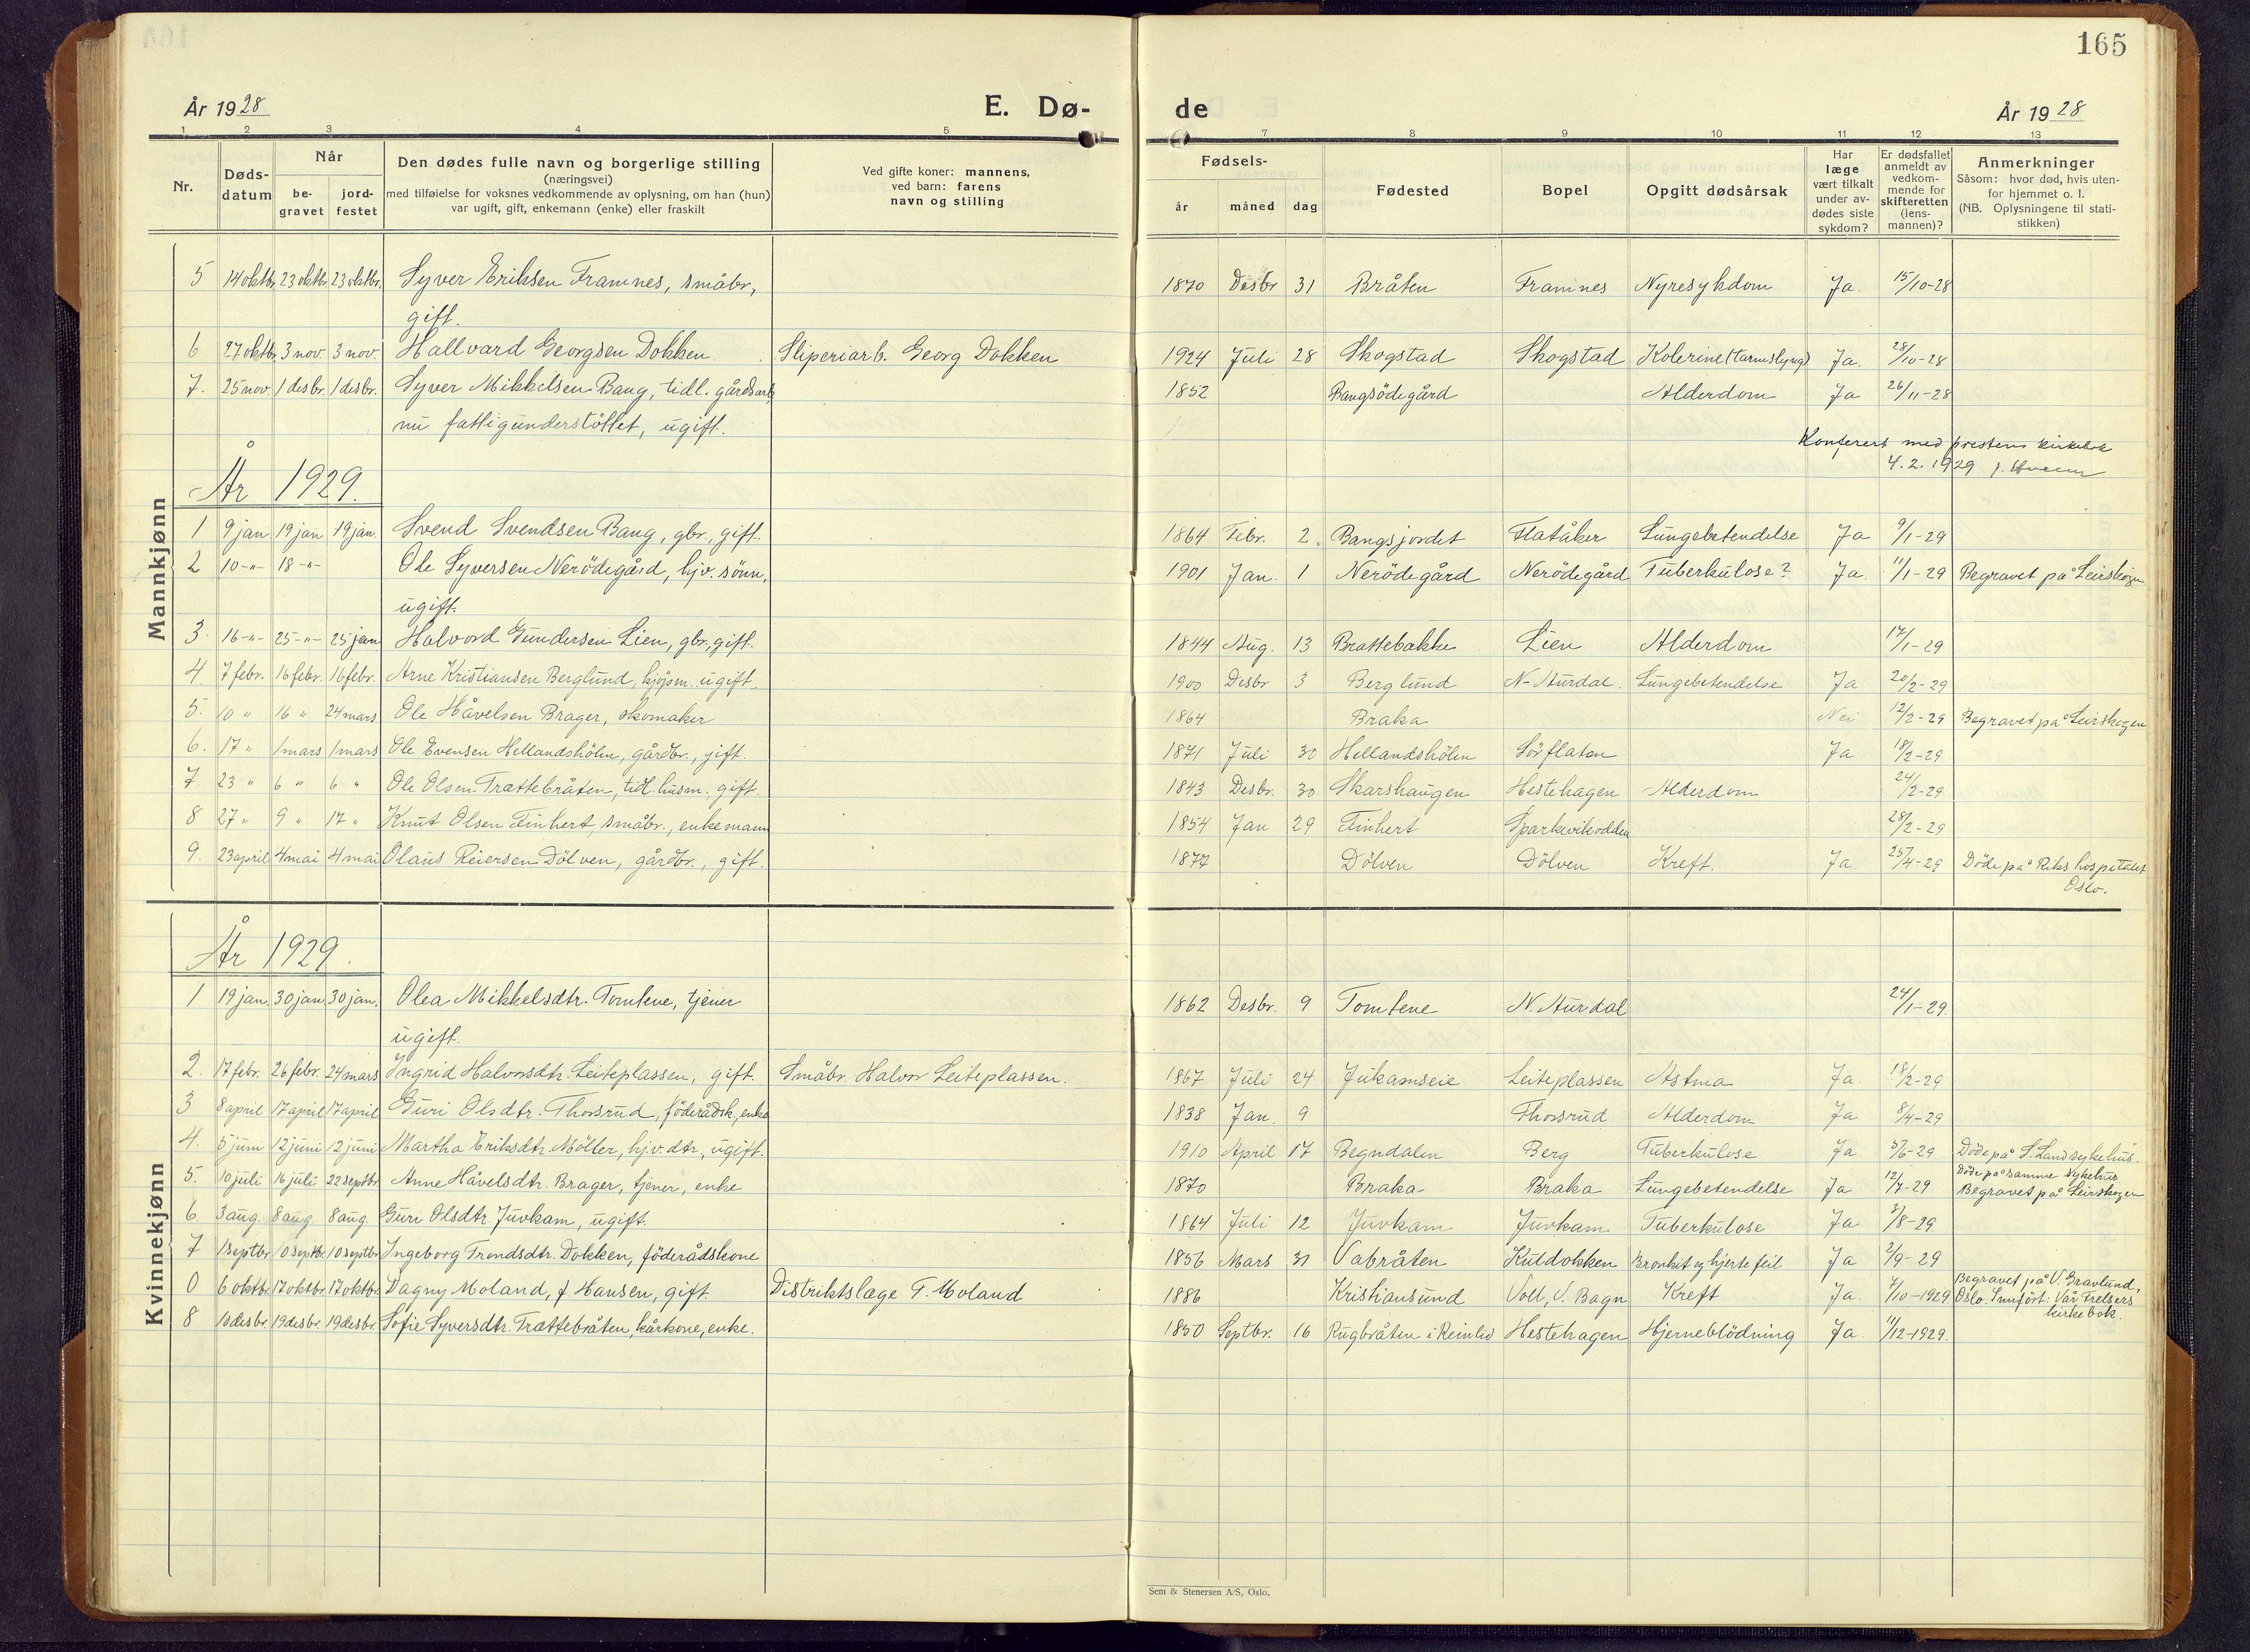 165
År 1928
E. Dø-
de
År 1928
1 2 3 4 5 7 8 9 10 11 12 13
Nr.
Døds-
datum
Når
be-
gravet
jord-
festet
Den dødes fulle navn og borgerlige stilling
(næringsvei)
med tilføielse for voksnes vedkommende av oplysning, om han (hun)
var ugift, gift, enkemann (enke) eller fraskilt
Ved gifte koner: mannens,
ved barn: farens
navn og stilling
Fødsels-
år måned dag
Fødested
Bopel
Opgitt dødsårsak
Har
læge
vært tilkalt
under av-
dødes siste
sykdom?
Er dødsfallet
anmeldt av
vedkom-
mende for
skifteretten
(lens-
mannen)?
Anmerkninger
Såsom: hvor død, hvis uten-
for hjemmet o. l.
(NB. Oplysningene til stati-
stikken)
Mannkjønn
5 14 oktbr. 23 oktbr. 23 oktbr. Syver Eriksen Framnes, småbr., 1870 Desbr 31 Bråten Framnes Nyresykdom Ja. 15/10-28
gift.
6 27 oktbr. 3 nov. 3 nov. Hallvard Georgsen Dokken. Sliperiarb. Georg Dokken 1924 Juli 28 Skogstad Skogstad Kolerine (tarmslyng) Ja. 28/10-28
7. 25 nov. 1 desbr. 1 desbr. Syver Mikkelsen Bang, tidl. gårdsarb, 1852 Bangsödegård Alderdom Ja 26/11-28
nu fattigunderstöttet, ugift.
Konferert med prestens kirkebok
4.2.1929
År 1929.
1 9 jan. 19 jan 19 jan. Svend Svendsen Bang, gbr., gift. 1864 Febr. 2. Bangsjordet Flatåker Lungebetendelse Ja 9/1-29
2 10-"- 18-"- Ole Syversen Nerödegård, hjv. sönn, 1901 Jan. 1 Nerödegård Nerödegård Tuberkulose? Ja. 11/1-29 Begravet på Leirskogen
ugift.
3. 16-"- 25-"- 25 jan Halvord Gundersen Lien, gbr., gift. 1844 Aug. 13 Brattebakke Lien Alderdom 17/1-29
4. 7 febr. 16 febr. 16 febr. Arne Kristiansen Berglund, kjøjsm. ugift. 1900 Desbr 3 Berglund N-Aurdal. Lungebetendelse Ja 20/2-29
5. 10 " 16 " 24 mars Ole Håvelsen Brager, skomaker 1864 Braka Nei 12/2-29 Begravet på Leirskogen
6. 17 " 1 mars 1 mars Ole Evensen Hellandshölen, gårdbr., gift. 1871 Juli 30 Hellandshölen Sörflaten Ja 18/2-29
7. 23 " 6 " 6 " Ole Olsen Trættebråten, tidl. husm., gift. 1843 Desbr. 30 Skarshaugen Hestehagen Alderdom 24/2-29
8 27 " 9 " 17 " Knut Olsen Finhert, småbr., enkemann 1854 Jan 29 Finhert Sparkevikodden 28/2-29
9. 23 april 4 mai 4 mai Olaus Reiersen Dölven, gårdbr., gift. 1877 Dölven Dölven Kreft. Ja 25/4-29 Döde på Rikshospitalet
Oslo.
Kvinnekjønn
År 1929.
1 19 jan. 30 jan. 30 jan. Olea Mikkelsdtr. Tomtene, tjener 1862 Desbr. 9 Tomtene N. Aurdal 24/1-29.
ugift.
2. 17 febr. 26 febr. 24 mars Ingrid Halvorsdtr. Leiteplassen, gift. Småbr. Halvor Leiteplassen. 1867 Juli 24 Jukamseie Leiteplassen Astma Ja. 18/2-29
3 8 april 17 april 17 april Guri Olsdtr. Thorsrud, föderådsk, enke 1838 Jan. 9 Thorsrud Alderdom Ja 8/4-29
4. 5 juni 12 juni 12 juni Martha Eriksdtr. Möller, hjv. dtr., ugift. 1910 April 17 Begndalen Berg Tuberkulose Ja 5/6-29 Döde på S. Land sykehus.
5. 10 juli 16 juli 22 septbr. Anne Håvelsdtr. Brager, tjener, enke 1870 Braka Braka Lungebetendelse Ja 12/7-29 Döde på samme sykehus
Begravet på Leirskogen
6 3 aug. 8 aug. 8 aug. Guri Olsdtr. Juvkam, ugift. 1864 Juli 12 Juvkam Juvkam Tuberkulose Ja 3/8-29
7 1 septbr. 10 septbr. 10 septbr. Ingeborg Trondsdtr. Dokken, föderådskone 1856 Mars 31 Vabråten Kuldokken Bronkit og hjertefeil Ja 2/9-29
0 6 oktbr. 17 oktbr. 17 oktbr. Dagny Moland, f. Hansen, gift. Distriktslæge T. Moland 1886 Kristiansund Voll, V. Bagn Kreft Ja. 7/10-1929 Begravet på V. Gravlund,
Oslo. Innfört: Vår Frelsers
kirkebok.
8 10 desbr. 19 desbr. 19 desbr. Sofie Syversdtr. Trættebråten, kårkone, enke. 1850 Septbr. 16 Rugbråten i Reinlid Hestehagen Hjerneblödning Ja 11/12-1929.
Sem & Stenersen A/S, Oslo.